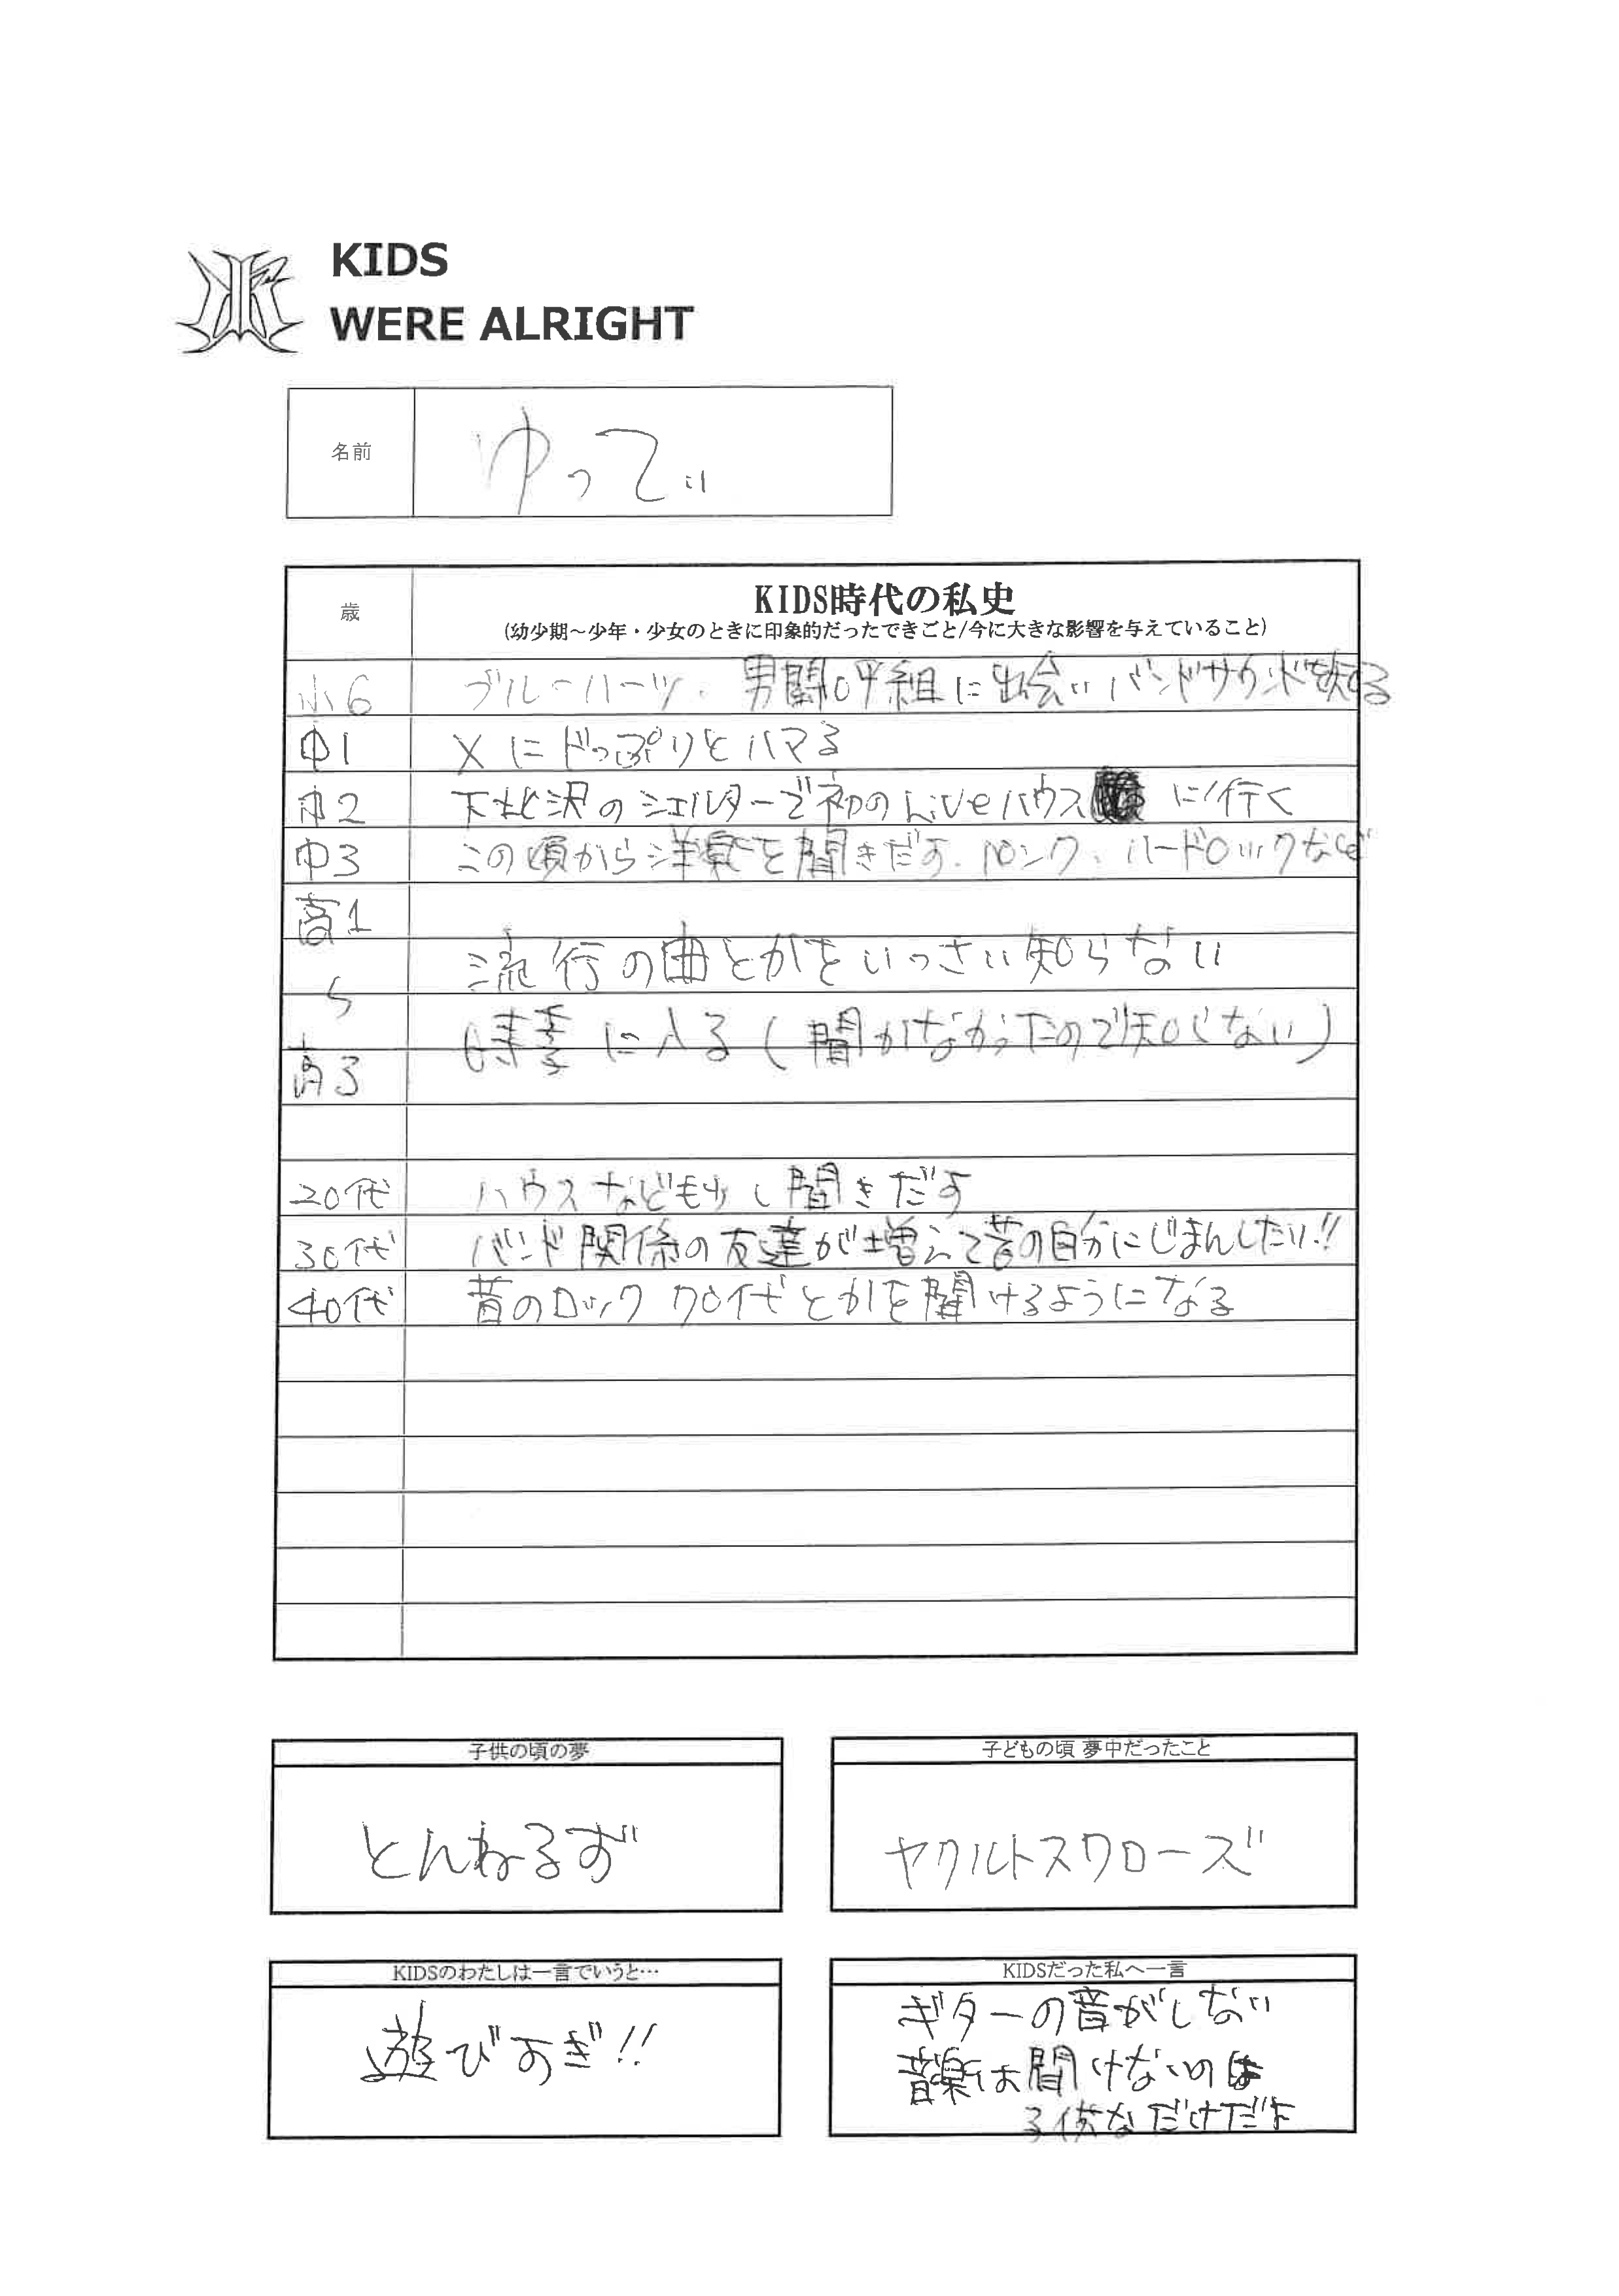 KIDS
WERE ALRIGHT
名前 ゆってぃ
歳 KIDS時代の私史
(幼少期～少年・少女のときに印象的だったできごと/今に大きな影響を与えていること)
小6 ブルーハーツ、男闘呼組に出会いバンドサウンドを知る
中1 Xにどっぷりとハマる
中2 下北沢のシェルターで初のLiveハウス に行く
中3 この頃から洋楽を聞きだす。パンク、ハードロックなど
高1
流行の曲とかをいっさい知らない
〜
時季に入る(聞かなかったので知らない)
高3
20代 ハウスなども少し聞きだす
30代 バンド関係の友達が増えて昔の自分にじまんしたい!!
40代 昔のロック 70代とかを聞けるようになる
子供の頃の夢
とんねるず
子どもの頃 夢中だったこと
ヤクルトスワローズ
KIDSのわたしは一言でいうと…
遊びすぎ!!
KIDSだった私へ一言
ギターの音がしない
音楽は聞けないのは
子供なだけだよ